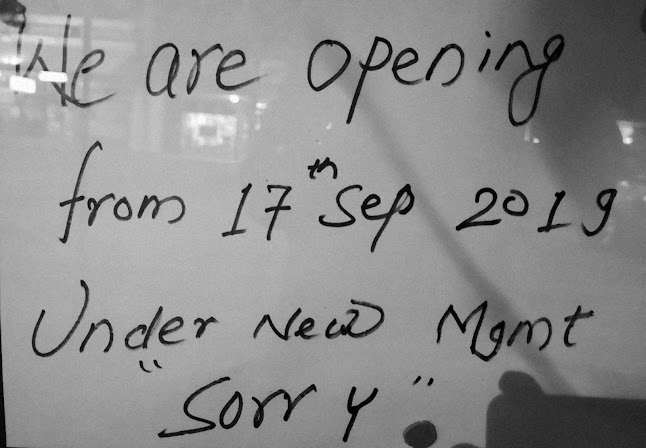 We are opening
from 17th Sep 2019
Under New Mgmt
"Sorry"